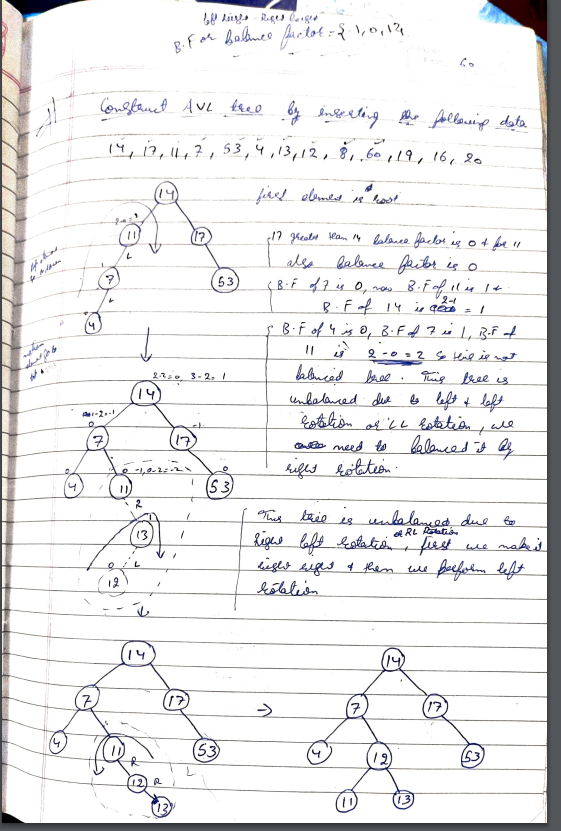 left height - Right height
B.F or Balance factor = {-1, 0, 1}
Construct AVL tree by inserting the following data
14, 17, 11, 7, 53, 4, 13, 12, 8, 60, 19, 16, 20
14
first element is root
2-0=2
11
17
L
17 greater than 14 balance factor is 0 & for 11
also balance factor is 0
7
53
B.F of 7 is 0, now B.F of 11 is 1 &
L
B.F of 14 is 2-1 = 1
4
B.F of 4 is 0, B.F of 7 is 1, B.F of
11 is 2-0=2 so this is not
balanced tree. This tree is
unbalanced due to left & left
rotation or LL rotation, we
need to balanced it by
right rotation.
2-2=0, 3-2=1
14
1-2=-1
-1
7
17
0
0
-1, 0-2=-2
0
4
11
53
R
This tree is unbalanced due to
Right left rotation or RL Rotation, first we make it
right right & then we perform left
rotation
1
13
0
L
12
14
14
7
17
→
7
17
4
11
53
4
12
53
R
12
R
13
11
13